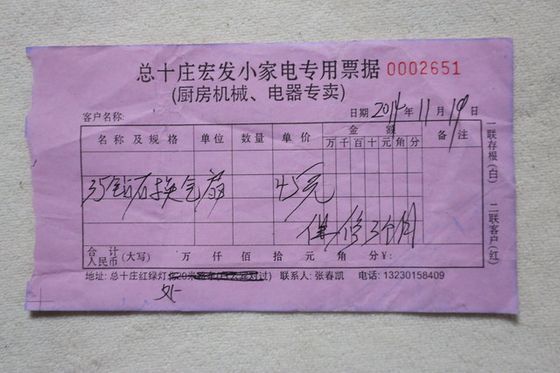 总十庄宏发小家电专用票据 0002651
(厨房机械、电器专卖)
客户名称: 日期 2014 年 11 月 19 日
名称及规格 单位 数量 单价 金额 备注
万 千 百 十 元 角 分
35 换气扇 45元
保修3个月
合计 人民币 (大写) 万 仟 佰 拾 元 角 分 ¥:
地址: 总十庄红绿灯 联系人: 张春凯 电话: 13230158409
处
一联存根(白) 二联客户(红)